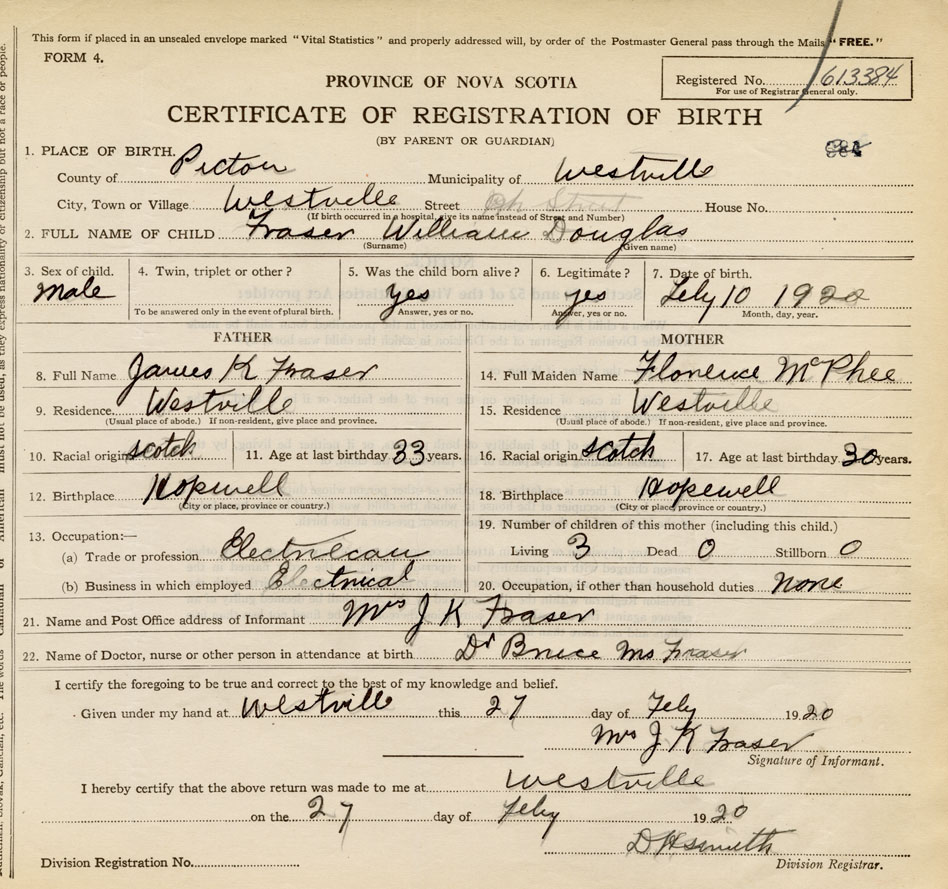 This form if placed in an unsealed envelope marked "Vital Statistics" and properly addressed will, by order of the Postmaster General pass through the Mails "FREE."
FORM 4.
Registered No. 613384
For use of Registrar General only.
PROVINCE OF NOVA SCOTIA
CERTIFICATE OF REGISTRATION OF BIRTH
(BY PARENT OR GUARDIAN)
1. PLACE OF BIRTH.
County of Pictou Municipality of Westville
City, Town or Village Westville Street Street House No.
(If birth occurred in a hospital, give its name instead of Street and Number)
2. FULL NAME OF CHILD Fraser William Douglas
(Surname) (Given name)
3. Sex of child. Male
4. Twin, triplet or other?
To be answered only in the event of plural birth.
5. Was the child born alive? yes
Answer, yes or no.
6. Legitimate? yes
Answer, yes or no.
7. Date of birth. Feby 10 1920
Month, day, year.
FATHER
8. Full Name James K Fraser
9. Residence. Westville
(Usual place of abode.) If non-resident, give place and province.
10. Racial origin scotch 11. Age at last birthday 33 years.
12. Birthplace Hopewell
(City or place, province or country.)
13. Occupation:—
(a) Trade or profession Electricean
(b) Business in which employed Electrical
MOTHER
14. Full Maiden Name Florence McPhee
15. Residence Westville
(Usual place of abode.) If non-resident, give place and province.
16. Racial origin scotch 17. Age at last birthday 30 years.
18. Birthplace Hopewell
(City or place, province or country.)
19. Number of children of this mother (including this child.)
Living 3 Dead 0 Stillborn 0
20. Occupation, if other than household duties none
21. Name and Post Office address of Informant Mrs J K Fraser
22. Name of Doctor, nurse or other person in attendance at birth Dr Bruce Ms Fraser
I certify the foregoing to be true and correct to the best of my knowledge and belief.
Given under my hand at Westville this 27 day of Feby 1920
Mrs J K Fraser
Signature of Informant.
I hereby certify that the above return was made to me at Westville
on the 27 day of Feby 1920
D H Smith
Division Registrar.
Division Registration No.